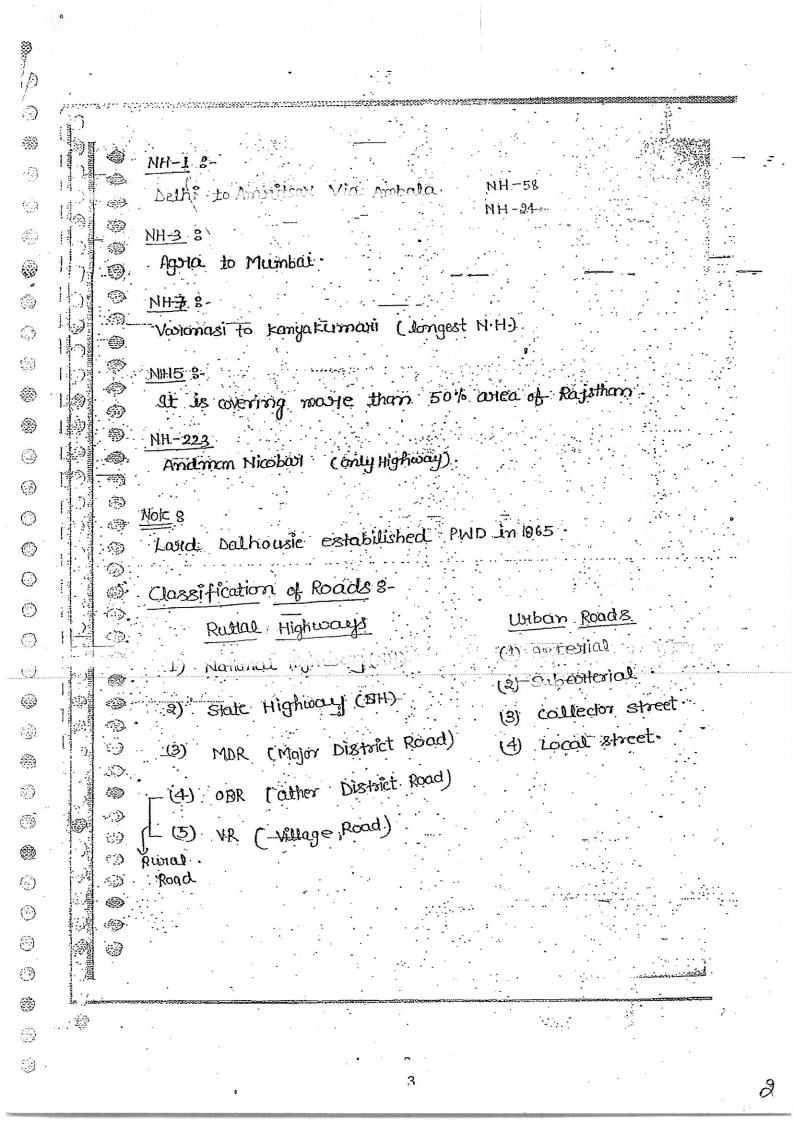 NH-1 :-
Delhi to Amritsar Via Ambala.
NH-58
NH-24
NH-3 :
Agra to Mumbai.
NH-7 :-
Varanasi to Kanyakumari (longest N.H.)
NH5 :-
It is covering more than 50% area of Rajsthan.
NH-223
Andman Nicobar (only Highway).
Note :
Lard Dalhousie estabilished PWD in 1865.
Classification of Roads :-
Rural Highways
Urban Roads
1) National Highway
(1) Arterial
2) State Highway (SH)
(2) Subarterial
(3) MDR (Major District Road)
(3) Collector street.
(4) Local street.
(4) ODR (other District Road)
(5) VR (Village Road)
Rural
Road
3
2